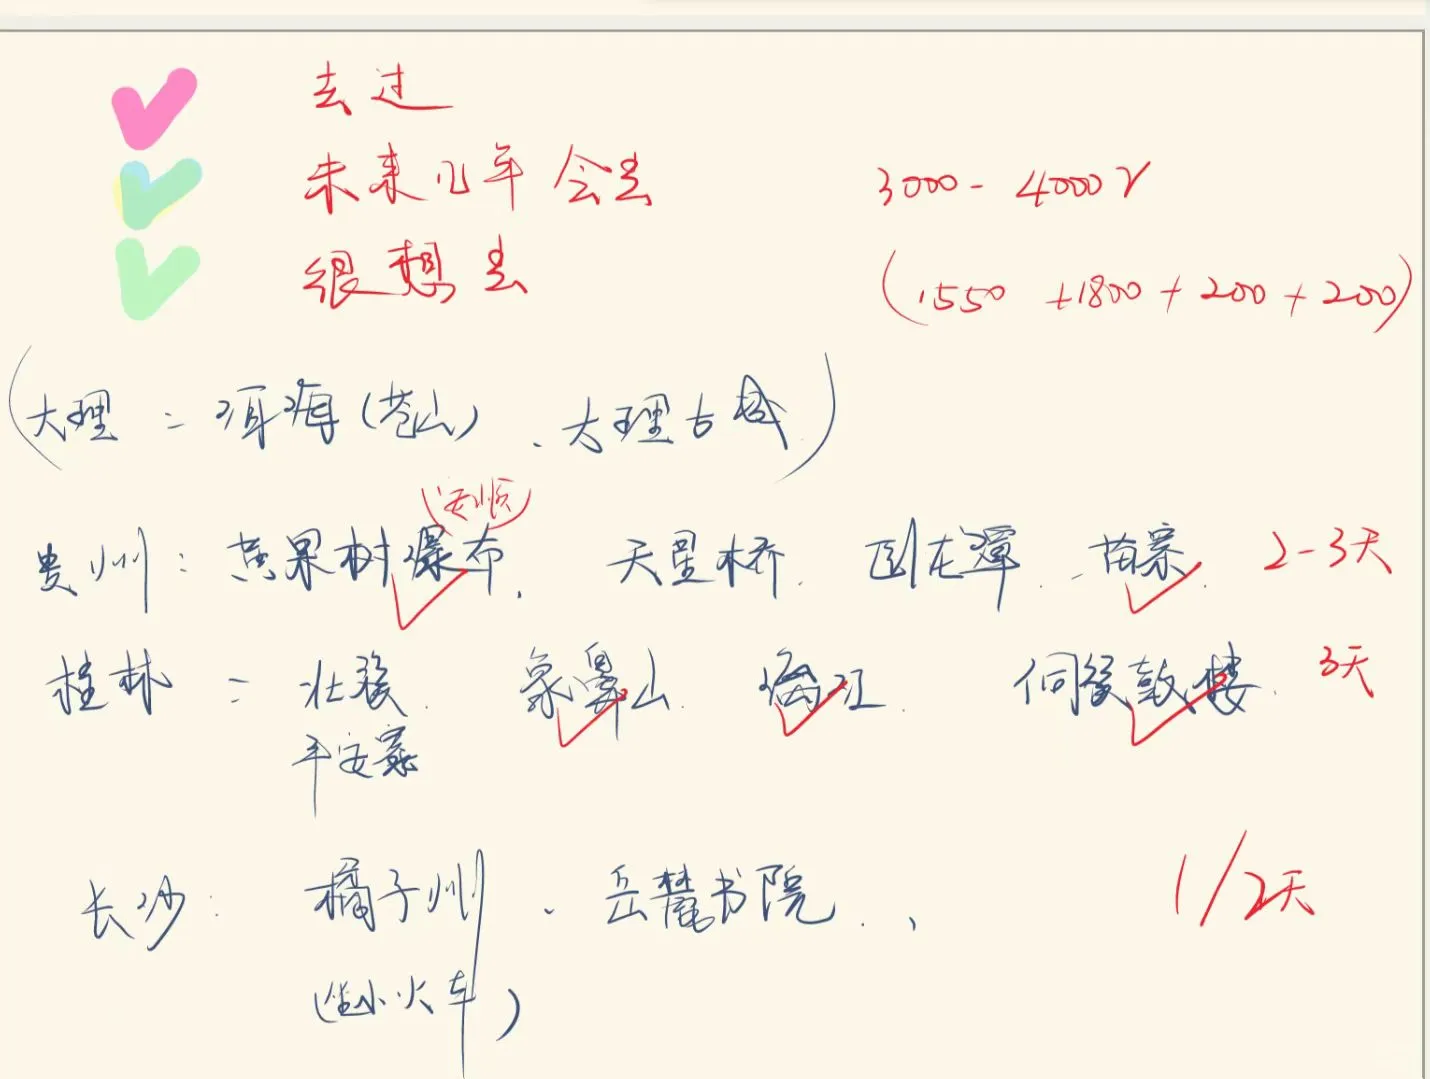 去过
未来几年会去
3000-4000r
很想去
(1550+1800+200+200)
(大理：洱海(苍山)、大理古城)
(安顺)
贵州：黄果树瀑布、天星桥、卧龙潭、苗寨. 2-3天
桂林：壮族. 象鼻山. 漓江. 侗族鼓楼. 3天
平安寨
长沙：橘子州、岳麓书院、 1/2天
(坐小火车)